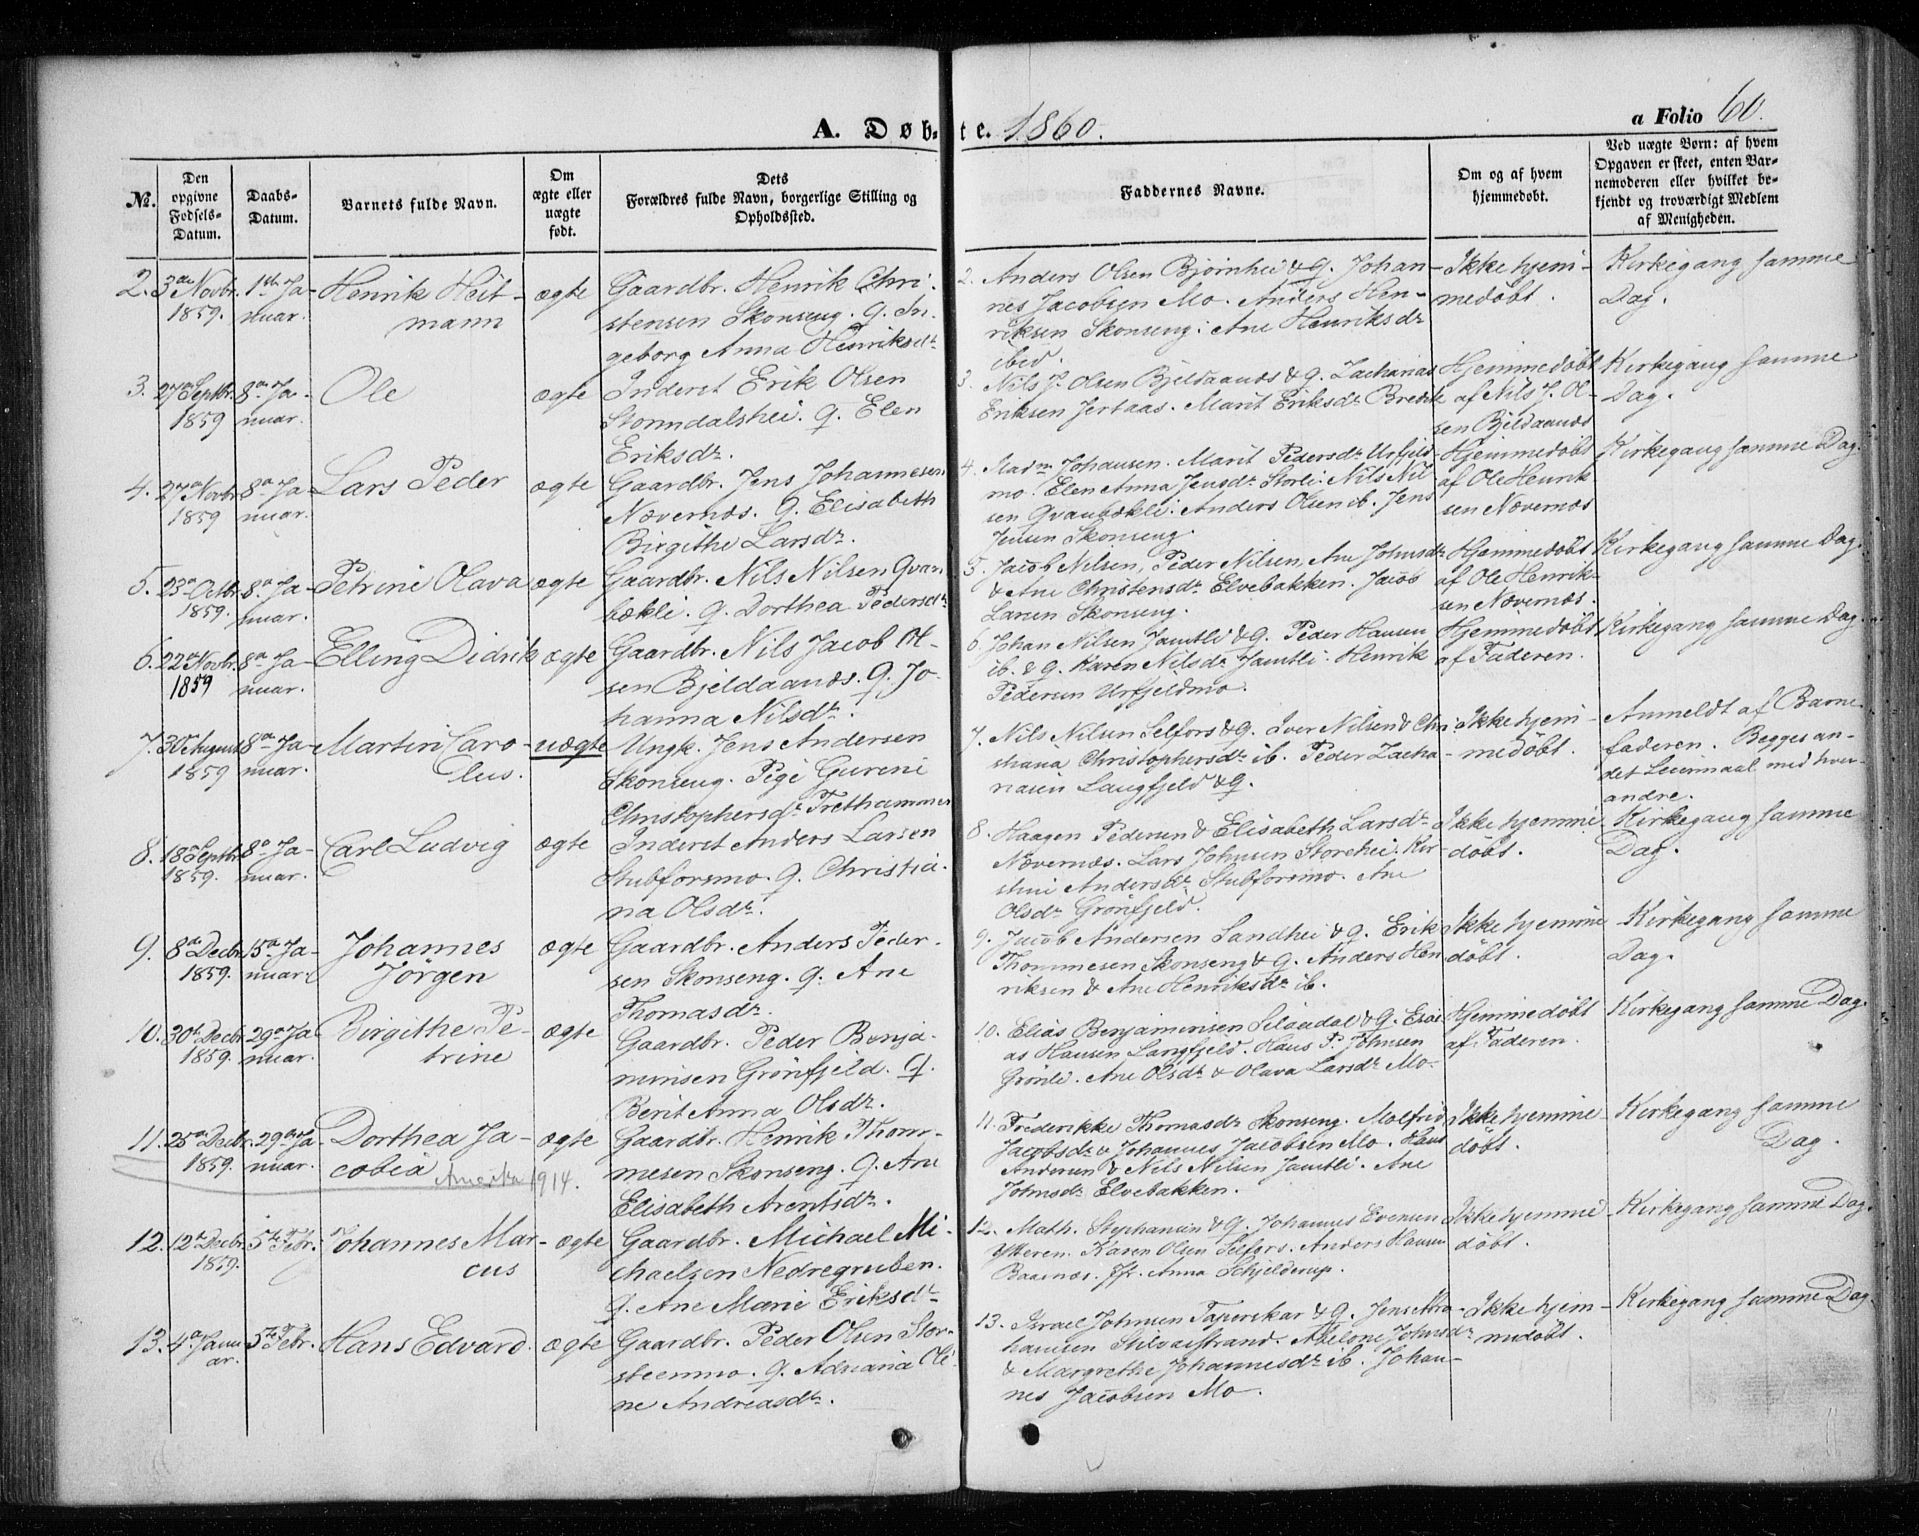 A. Døbte. 1860.
a Folio 60.
№.
Den opgivne Fødsels-Datum.
Daabs-Datum.
Barnets fulde Navn.
Om ægte eller uægte født.
Dets Forældres fulde Navn, borgerlige Stilling og Opholdssted.
Faddernes Navne.
Om og af hvem hjemmedøbt.
Ved uægte Børn: af hvem Opgaven er skeet, enten Barnemoderen eller hvilket bekjendt og troværdigt Medlem af Menigheden.
2. 3de Novbr. 1859. 1ste Januar. Henrik Heitmann ægte
Gaardbr. Henrik Chri-
stensen Skonseng. G. In-
geborg Anna Henriksdr.
2. Anders Olsen Bjørnhei & G. Johan-
nes Jacobsen Mo. Anders Hen-
riksen Skonseng. Ane Henriksdr
ibid.
Ikke hjem-
medøbt.
Kirkegang samme
Dag.
3. 27de Septbr. 1859 8de Januar. Ole ægte
Inderst Erik Olsen
Stormdalshei. G. Elen
Eriksdr.
3. Nils J. Olsen Bjeldaanæs & G. Zacharias
Eriksen Jertaas. Marit Eriksdr Bredek
Hjemmedøbt
af Nils J. Ol-
sen Bjeldaanæs
Kirkegang samme
Dag.
4. 27de Novbr. 1859 8de Januar. Lars Peder ægte
Gaardbr. Jens Johannesen
Nævernæs. G. Elisabeth
Birgithe Larsdr.
4. Madm Johansen. Marit Pedersdr Urfjeld-
mo. Elen Anna Jensdr Storli. Nils Nil-
sen Qvanbækli. Anders Olsen ib. Jens
Jensen Skonseng.
Hjemmedøbt
af Ole Henrik
sen Nævernæs
Kirkegang samme Dag.
5. 23de Octbr. 1859. 8de Januar. Petrine Olava ægte
Gaardbr. Nils Nilsen Qvan
bækli. G. Dorthea Pedersdr
5. Jacob Nilsen, Peder Nilsen, Ane Johnsdr
& Ane Christensdr Elvebakken. Jacob
Larsen Skonseng.
Hjemmedøbt
af Ole Henrik-
sen Nævernæs.
Kirkegang samme Dag.
6. 22de Novbr. 1859 8de Januar. Elling Didrik ægte
Gaardbr. Nils Jacob Ol-
sen Bjeldaanæs. G. Jo-
hanna Nilsdr.
6. Johan Nilsen Jamtli & G. Peder Hansen
ib. & G. Karen Nilsdr Jamtli. Henrik
Pedersen Urfjeldmo.
Hjemmedøbt
af Faderen.
Kirkegang samme Dag.
7. 30 August 1859 8de Januar. Martin Caro-
lus. uægte
Ungk. Jens Andersen
Skonseng. Pige Gurine
Christophersdr Trethammer
7. Nils Nilsen Selfors & G. Iver Nilsen & Chri
stiana Christophersdr ib. Peder Zacha-
riasen Langfjeld & G.
Ikke hjem-
medøbt.
Anmeldt af Barne-
faderen. Begges an-
det Leiermaal med hver-
andre.
8. 18de Septbr. 1859. 8de Januar. Carl Ludvig ægte
Inderst Anders Larsen
Stubforsmo. G. Christia-
na Olsdr.
8. Haagen Pedersen & Elisabeth Larsdr
Nævernæs. Lars Johnsen Storehei. Kir-
stine Andersdr Stubforsmo. Ane
Olsdr Grønfjeld.
Ikke hjemme-
døbt.
Kirkegang samme
Dag.
9. 8de Decbr. 1859. 15de Januar. Johannes
Jörgen ægte
Gaardbr. Anders Peder-
sen Skonseng. G. Ane
Thomasdr.
9. Jacob Andersen Sandhei & G. Erik
Thommesen Skonseng & G. Anders Hen
riksen & Ane Henriksdr ib.
Ikke hjemme
døbt.
Kirkegang samme
Dag.
10. 30te Decbr. 1859. 29de Januar. Birgithe Pe-
trine ægte
Gaardbr. Peder Benja-
minsen Grönfjeld. G.
Berit Anna Olsdr.
10. Elias Benjaminsen & G. Esai
as Hansen Langfjeld. Hans P. Johnsen
Grönli. Ane Olsdr & Olava Larsdr Mo.
Hjemmedøbt
af Faderen.
Kirkegang samme Dag.
11. 25de Decbr. 1859. 29de Januar. Dorthea Ja-
cobia ægte
Amerika 1914.
Gaardbr. Henrik Thom-
mesen Skonseng. G. Ane
Elisabeth Arentsdr.
11. Frederikke Thomasdr Skonseng. Molfrid
Jacobsdr & Johannes Jacobsen Mo. Hans
Andersen & Nils Nilsen Jamtli. Ane
Johnsdr Elvebakken.
Ikke hjemme-
døbt.
Kirkegang samme
Dag.
12. 12te Decbr. 1859. 5te Febr. Johannes Mar-
cus ægte
Gaardbr. Michael Mi-
chaelsen Nedregruben.
G. Ane Marie Eriksdr
12. Math. Stephansen & G. Johannes Evensen
Ytteren. Karen Olsen Selfors. Anders Hansen
Baasnæs. Jfr. Anna Schjelderup.
Ikke hjemme-
døbt.
Kirkegang samme Dag.
13. 4de Januar. 5te Febr. Hans Edvard. ægte
Gaardbr. Peder Olsen Stor-
steenmo. G. Adriana Oli-
ne Andreasdr.
13. Israel Johnsen Tapeskar & G. Jens Abra-
hamsen Stilvasstrand. Abelone Johnsdr
& Margrethe Johannesdr ib. Johan-
nes Jacobsen Mo.
Ikke hjem-
medøbt.
Kirkegang samme Dag.